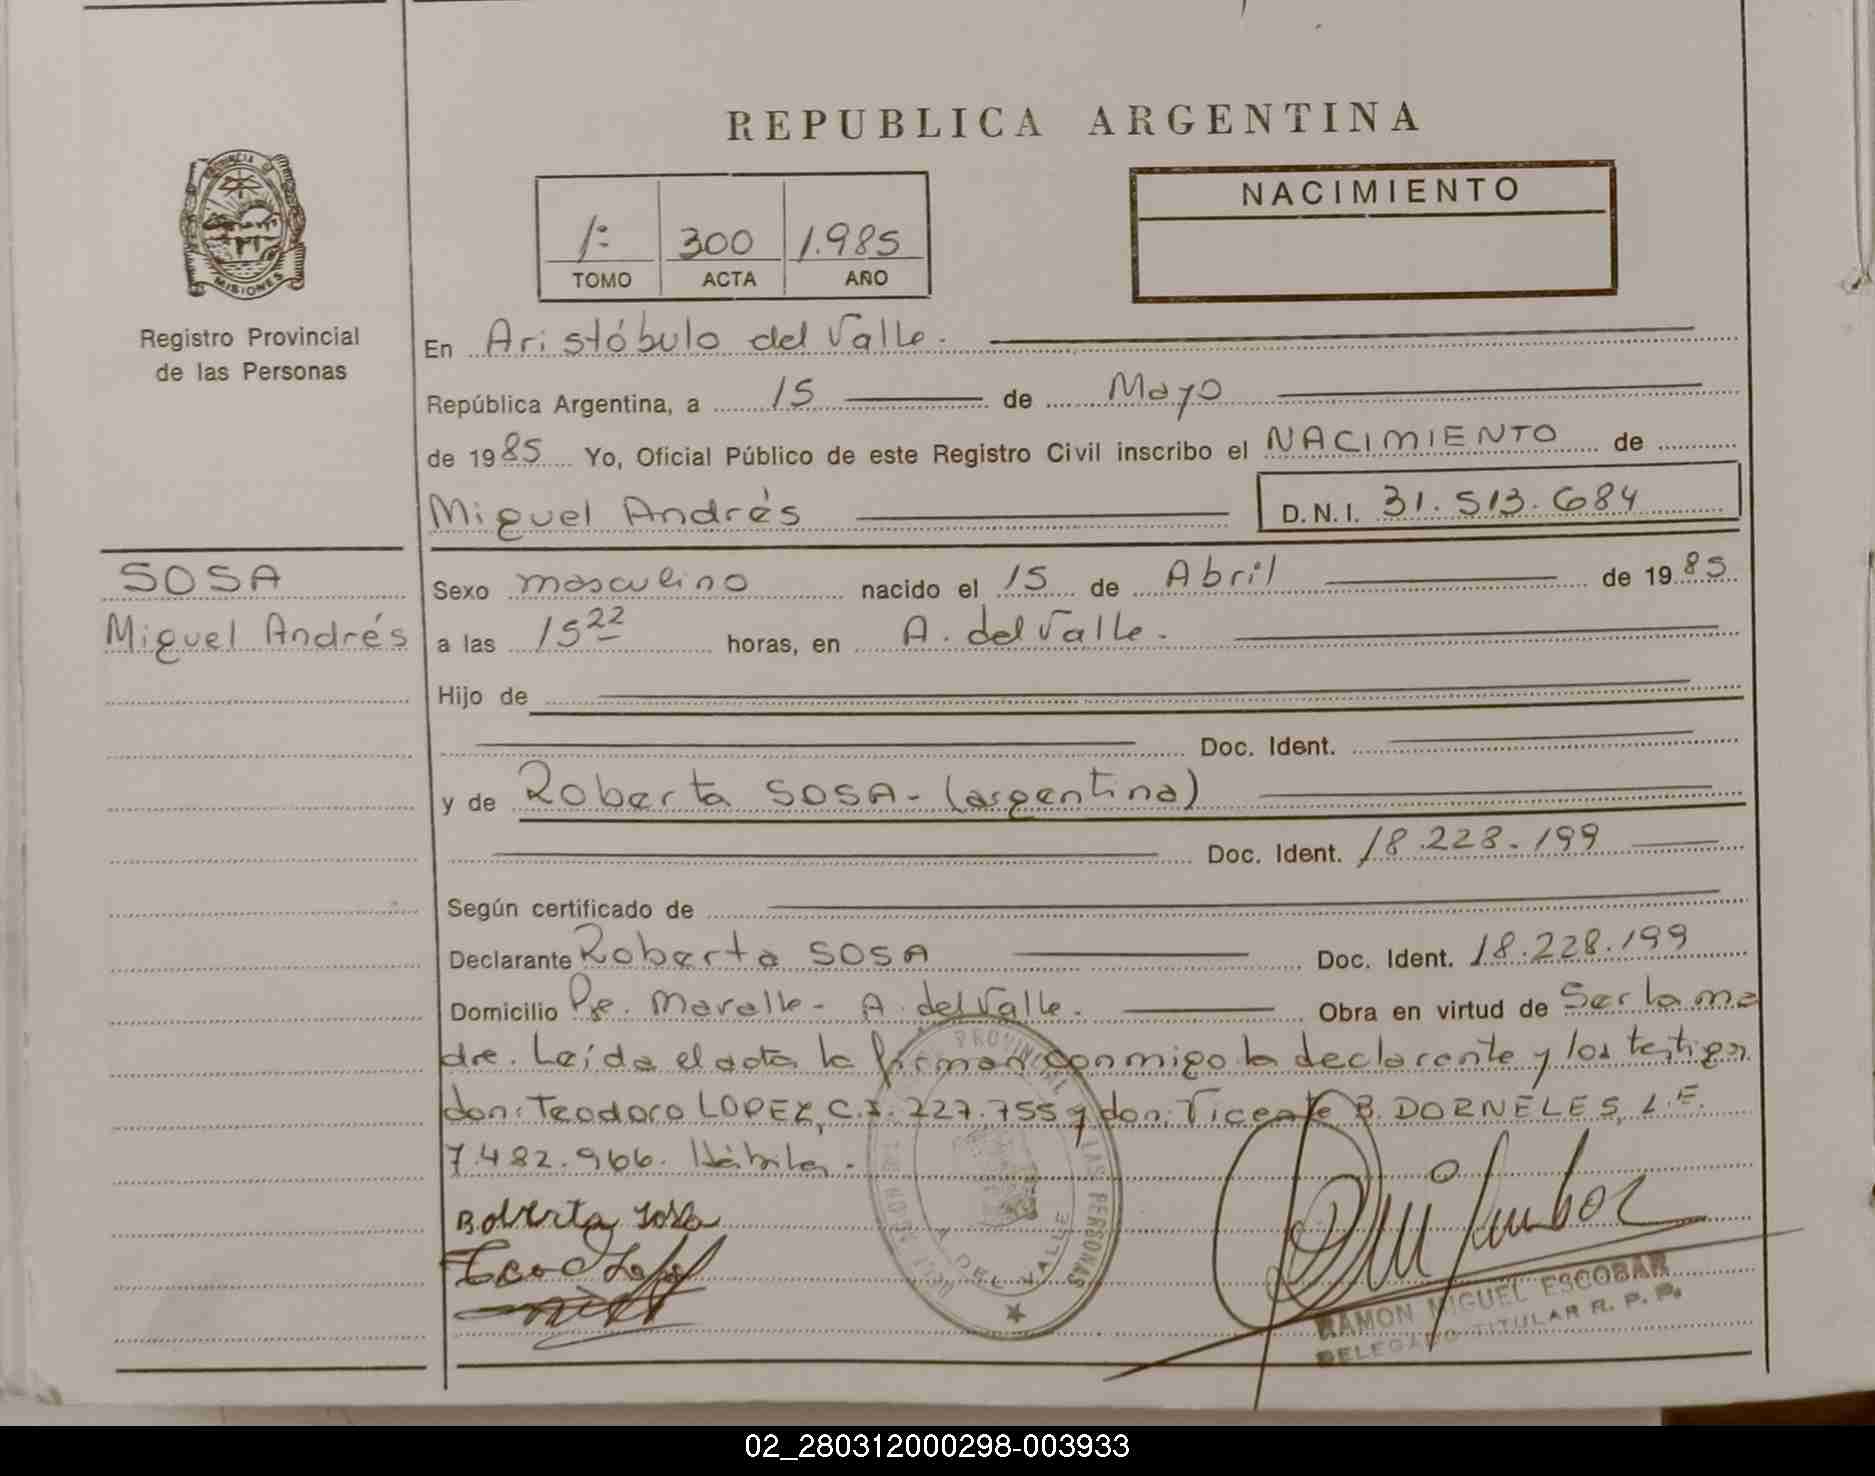 REPUBLICA ARGENTINA
PROVINCIA DE
MISIONES
Registro Provincial
de las Personas
1º 300 1.985
TOMO ACTA AÑO
NACIMIENTO
En Aristóbulo del Valle.
República Argentina, a 15 de Mayo
de 1985 Yo, Oficial Público de este Registro Civil inscribo el NACIMIENTO de
Miguel Andrés D.N.I. 31.513.684
SOSA
Miguel Andrés
Sexo masculino nacido el 15 de Abril de 1985
a las 15 22 horas, en A. del Valle.
Hijo de
Doc. Ident.
y de Roberta SOSA- (argentina)
Doc. Ident. 18.228.199
Según certificado de
Declarante Roberta SOSA Doc. Ident. 18.228.199
Domicilio A. del Valle. Obra en virtud de Ser la ma
dre. Leída el acta la firman conmigo la declarante y los testigos
don: Teodoro LOPEZ, C.I. 227.755 y don: Vicente B. DORNELES, L.E.
7.482.966. Hábiles.
Roberta Sosa
PROVINCIAL LAS PERSONAS
A. DEL VALLE
RAMON MIGUEL ESCOBAR
DELEGADO TITULAR R. P. P.
02_280312000298-003933